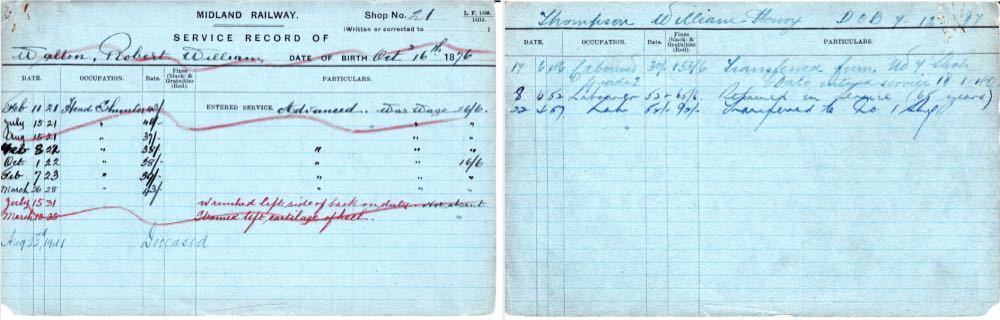 MIDLAND RAILWAY. Shop No. 21 L. F. 1100.
(Written or corrected to )
SERVICE RECORD OF
Walton, Robert William DATE OF BIRTH Oct 16th 1876
DATE. OCCUPATION. Rate. Fines (black) & Gratuities (Red). PARTICULARS.
Feb 11 21 Head Shunter ENTERED SERVICE. Advanced War Wage 26/6.
July 15 21 " 40/- " "
Aug 15 21 " 37/- " "
Feb 8 22 " 38/- " " "
Oct 1 22 " 38/- " " 16/6
Feb 7 23 " 39/- " " "
March 26 28 " 43/- " "
July 15 31 Wrenched left side of back on duty. Not absent
March 35 left cartilage of "
Aug 22nd, 1941 Deceased
Thompson William Henry D O B 7. 12 97
DATE. OCCUPATION. Rate. Fines (black) & Gratuities (Red). PARTICULARS.
17 6 Transferred from No 4 Shop
Grade 2 service
8 6 52 Labourer 52/- Retained in service (65 years)
22 57 Lab Transferred to No 1 Shop